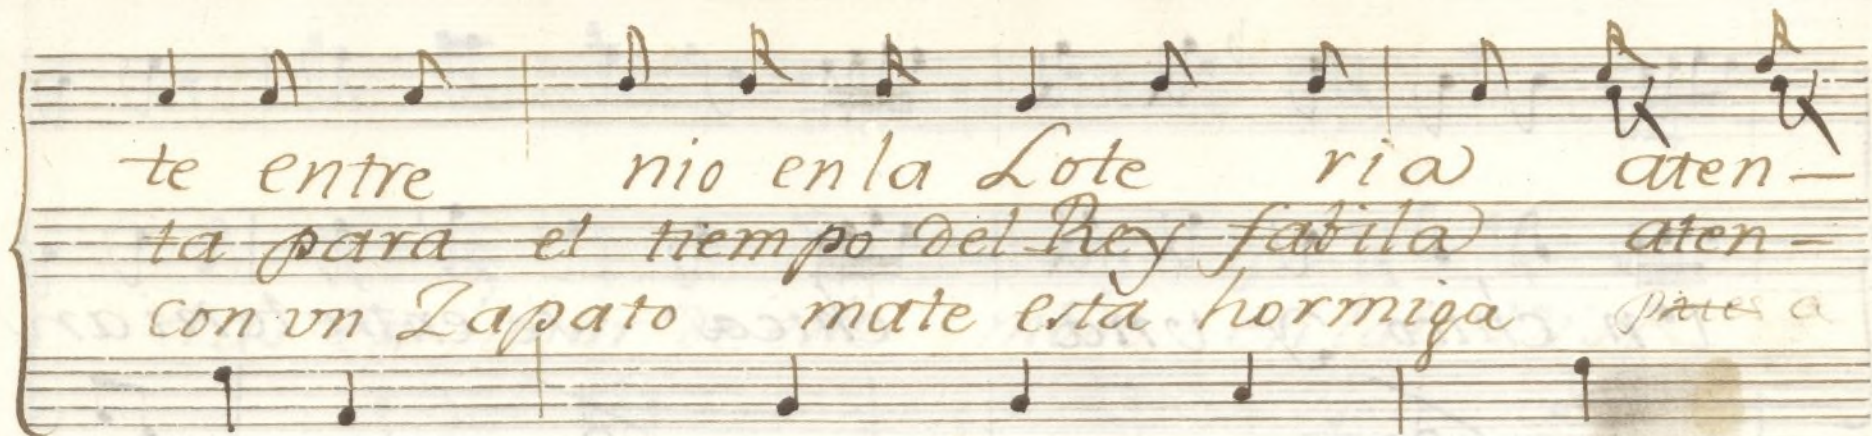 te entre nio en la Lote ria aten-
ta para el tiempo del Rey fabila aten-
con vn Zapato mate esta hormiga a